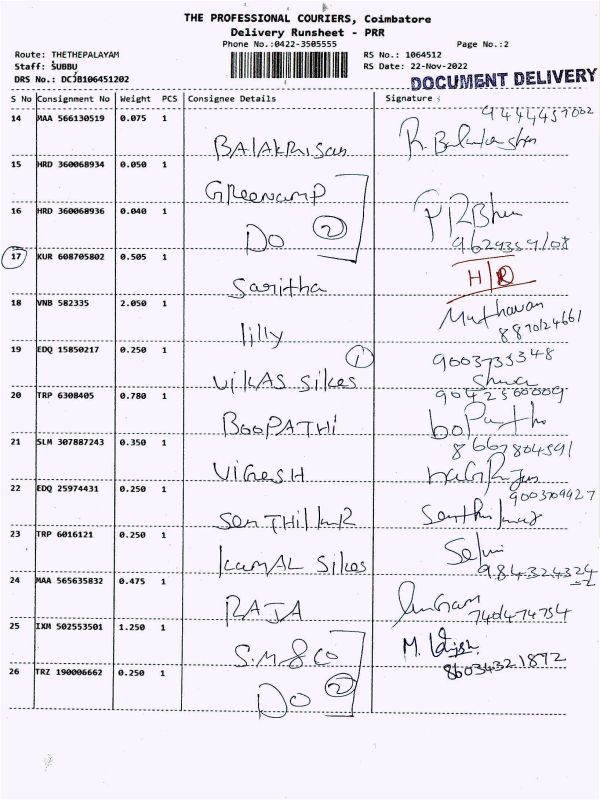 THE PROFESSIONAL COURIERS, Coimbatore
Delivery Runsheet - PRR
Phone No.:0422-3505555 Page No.:2
Route: THETHEPALAYAM RS No.: 1064512
Staff: SUBBU RS Date: 22-Nov-2022
DRS No.: DCJB106451202 DOCUMENT DELIVERY
S No Consignment No Weight PCS Consignee Details Signature
14 MAA 566130519 0.075 1
BALAKRISAN
15 HRD 360068934 0.050 1
Greenamp
16 HRD 360068936 0.040 1
DO 2
17 KUR 608705802 0.505 1
Saritha H/R
18 VNB 582335 2.050 1 Muthavan
lilly
19 EDQ 15850217 0.250 1 1 9003735348
VikAS Silkes
20 TRP 6308405 0.780 1
BooPATHi
21 SLM 307887243 0.350 1
ViGnESH
22 EDQ 25974431 0.250 1
23 TRP 6016121 0.250 1 Selvi
KamAL Silkes
24 MAA 565635832 0.475 1
RAJA
25 IXM 502553501 1.250 1
S.M & Co
26 TRZ 190006662 0.250 1 86034321892
DO 2